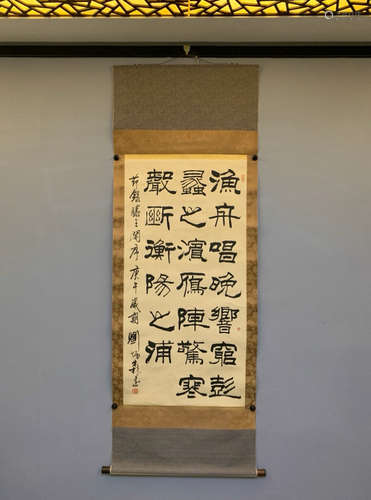 漁舟唱晚響窮彭
蠡之濱雁陣驚寒
聲斷衡陽之浦
節錄滕王閣序 庚午歲朝 劉炳森書